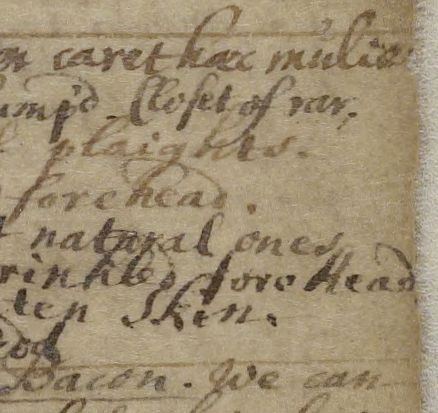 caret hac mulier
Closet of rar,
plaights.
forehead.
natural ones
rinkled foreHead
ten Skin.
Bacon. We can